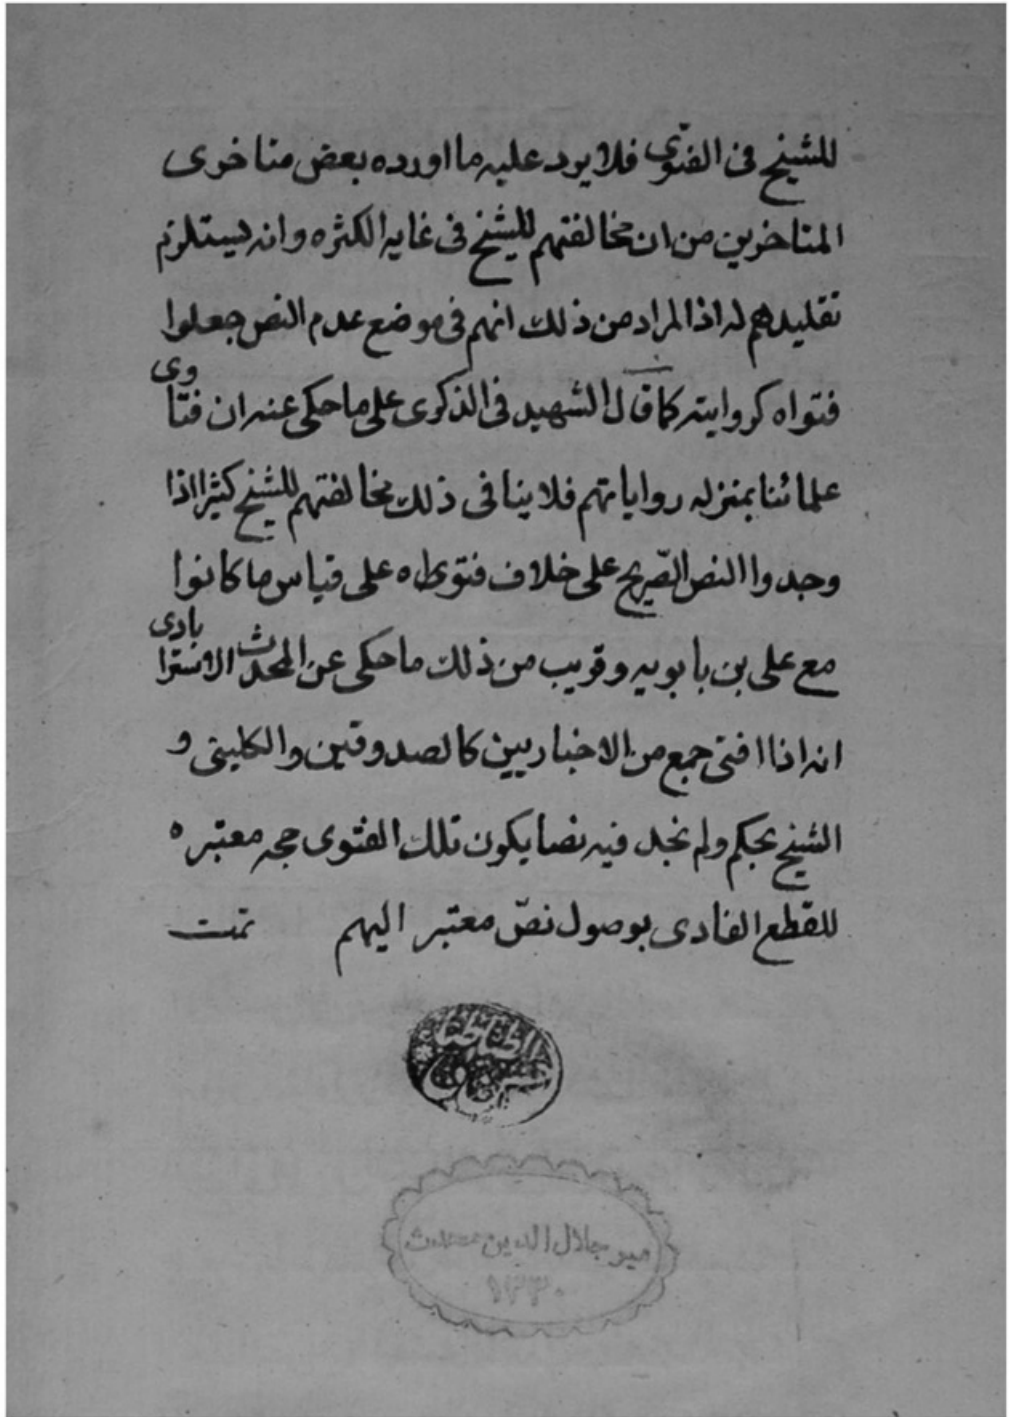 للشيخ فى الفتوى فلا يرد عليه ما اورده بعض متاخرى
المتاخرين من ان مخالفتهم للشيخ فى غايه الكثره وانه يستلزم
تقليدهم له اذا المراد من ذلك انهم فى موضع عدم النص جعلوا
فتواه كروايته كما قال الشهيد فى الذكرى على ما حكى عنه ان فتاوى
علمائنا بمنزله رواياتهم فلا ينافى ذلك مخالفتهم للشيخ كثيرا اذا
وجدوا النص الصّريح على خلاف فتواه على قياس ما كانوا
مع على بن بابويه وقريب من ذلك ما حكى عن المحدث الاسترابادى
انه اذا افتى جمع من الاخباريين كالصدوقين والكلينى و
الشيخ بحكم ولم نجد فيه نصا يكون تلك الفتوى حجه معتبره
للقطع العادى بوصول نصّ معتبر اليهم تمت
مير جلال الدين محدث